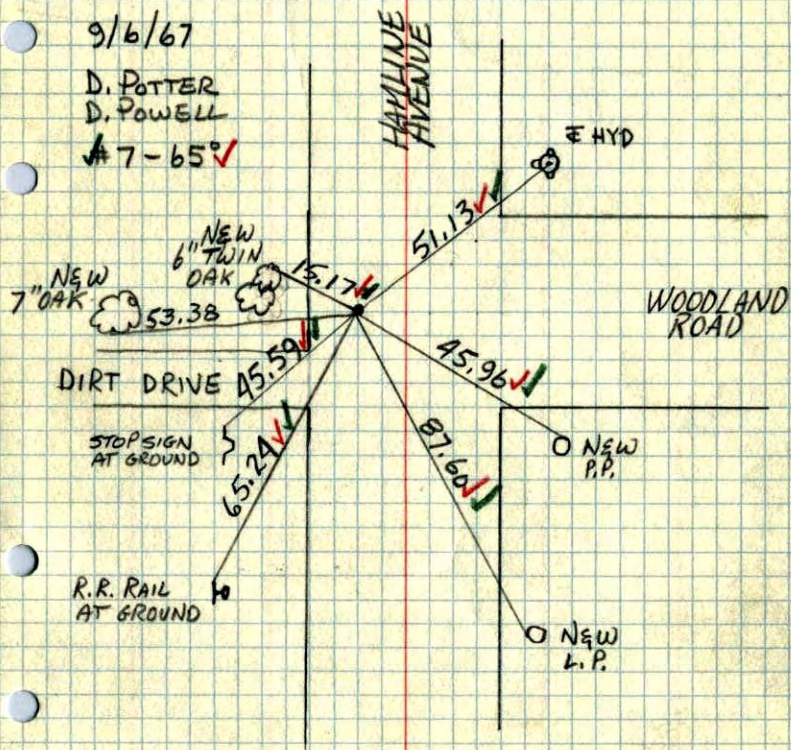 9/6/67
D. POTTER
D. POWELL
# 7 - 65°
HAMLINE
AVENUE
℄ HYD
51.13
NEW
6" TWIN
OAK
15.17
NEW
7" OAK
53.38
WOODLAND
ROAD
DIRT DRIVE
45.59
45.96
STOP SIGN
AT GROUND
65.24
87.60
NEW
P.P.
R.R. RAIL
AT GROUND
NEW
L.P.